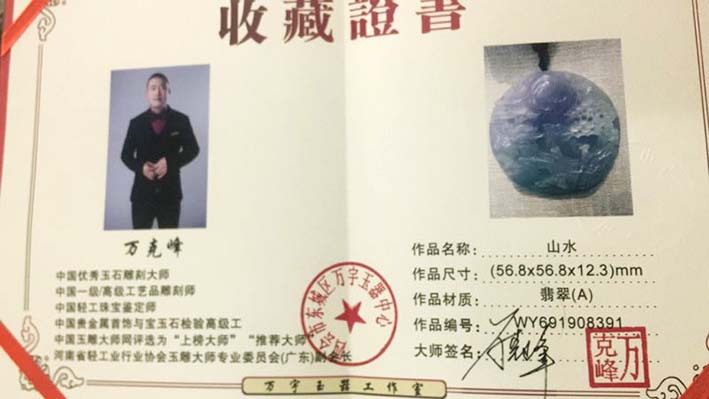 收藏證書
万克峰
中国优秀玉石雕刻大师
中国一级/高级工艺品雕刻师
中国轻工珠宝鉴定师
中国贵金属首饰与宝玉石检验高级工
中国玉雕大师网评选为“上榜大师” “推荐大师”
河南省轻工业行业协会玉雕大师专业委员会(广东)副会长
作品名称: 山水
作品尺寸: (56.8x56.8x12.3)mm
作品材质: 翡翠(A)
作品编号: WY691908391
大师签名:
万克峰
市东城区万宇玉器中心
万宇玉器工作室